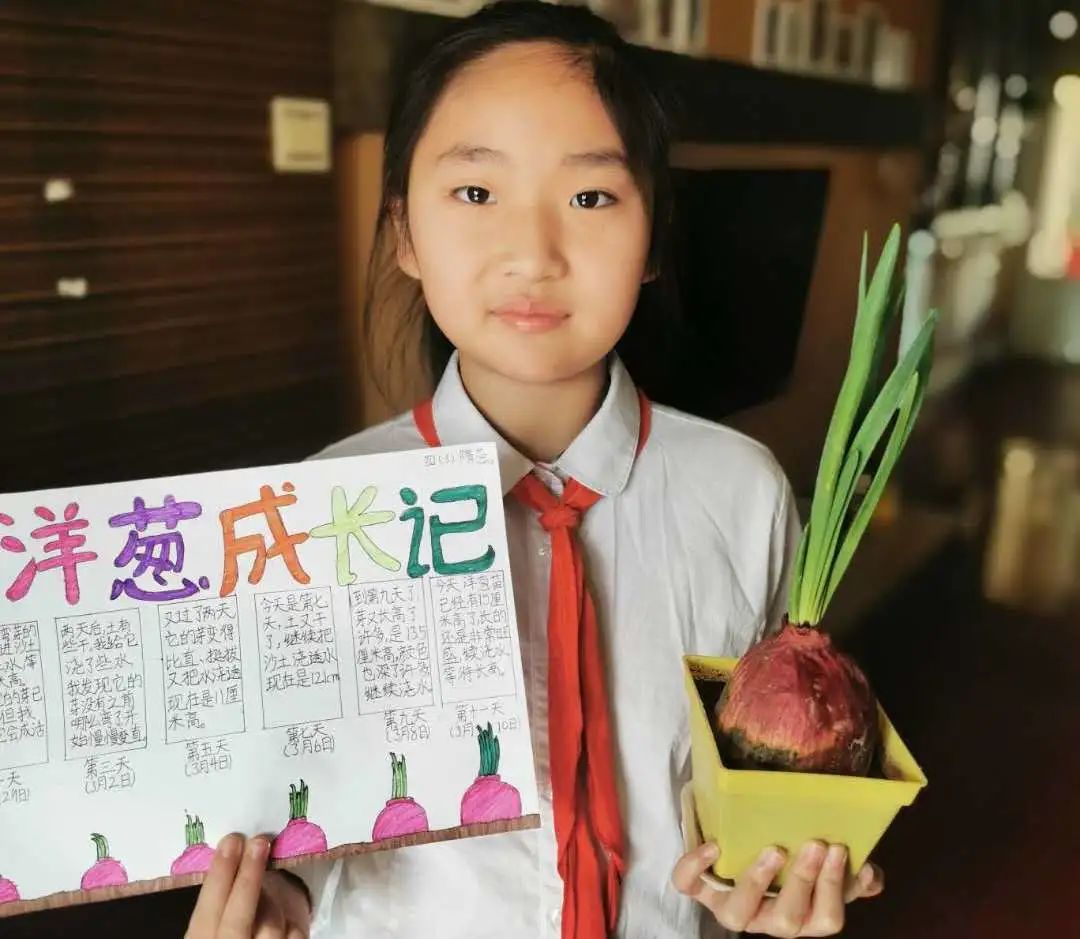 洋葱成长记
进沙土
水,等
的芽已
但我
会成活
两天后,土有
些干,我给它
浇了些水
我发现它的
芽没有之前
那么弯了,开
始慢慢变直
又过了两天
它的芽变得
比直、挺拔
又把水浇透
现在是11厘
米高。
今天是第七
天,土又干
了,继续把
沙土浇透水
现在是12cm
到第九天了
芽又长高了
许多,是13.5
厘米高,颜色
也深了许多
继续浇水
今天洋葱苗
已经有15厘
米高了,长的
还是非常旺
盛,续浇水
等待长高。
天
第三天
(3月2日)
第五天
(3月4日)
第七天
(3月6日)
第九天
(3月8日)
第十一天
(3月10日)